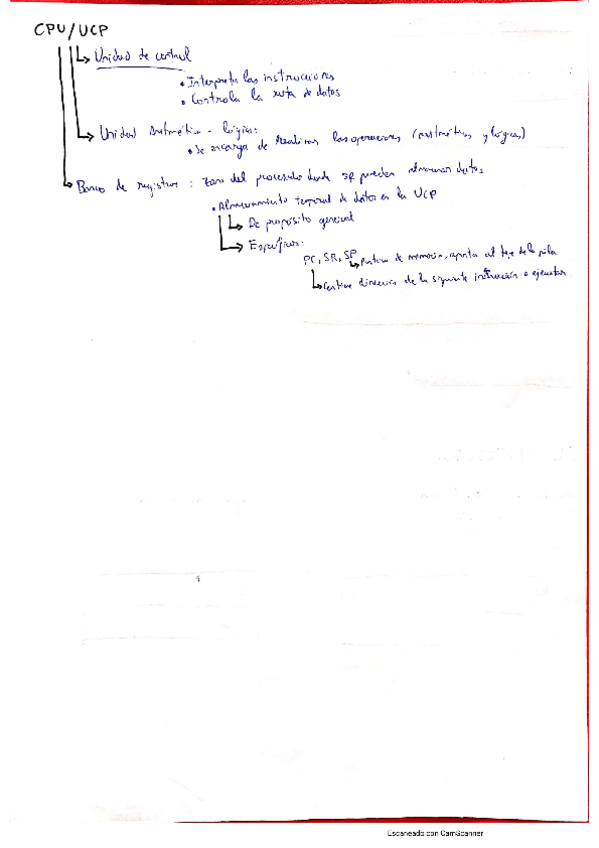 CPU/UCP
Unidad de control
• Interpreta las instrucciones
• Controla la ruta de datos
Unidad Aritmético - lógica:
• Se encarga de realizar las operaciones (aritméticas y lógicas)
Banco de registros : Zona del procesador donde se pueden almacenar datos.
• Almacenamiento temporal de datos en la UCP
De propósito general
Específicos:
PC, SR, SP Puntero de memoria, apunta al tope de la pila
Contiene dirección de la siguiente instrucción a ejecutar
Escaneado con CamScanner